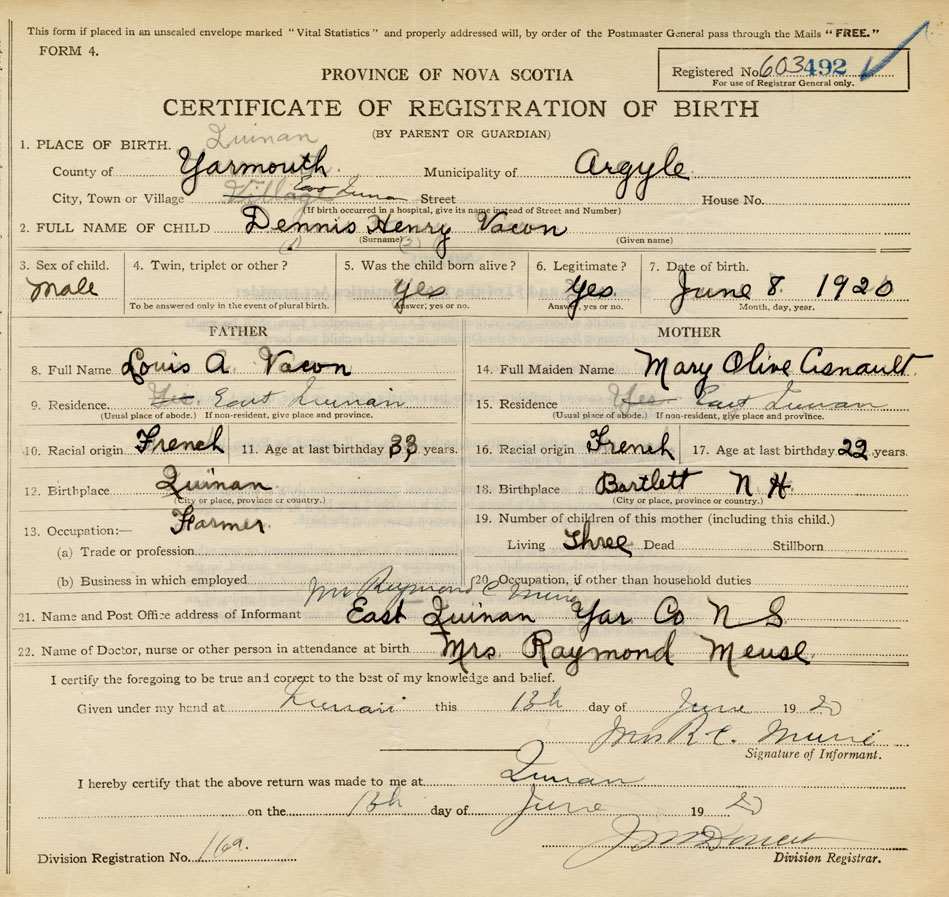 This form if placed in an unscaled envelope marked "Vital Statistics" and properly addressed will, by order of the Postmaster General pass through the Mails "FREE."
FORM 4.
Registered No. 603492
For use of Registrar General only.
PROVINCE OF NOVA SCOTIA
CERTIFICATE OF REGISTRATION OF BIRTH
(BY PARENT OR GUARDIAN)
1. PLACE OF BIRTH. Quinan
County of Yarmouth Municipality of Argyle
City, Town or Village Village East Street House No.
(If birth occurred in a hospital, give its name instead of Street and Number)
2. FULL NAME OF CHILD Dennis Henry Vacon
(Surname) (2) (Given name)
3. Sex of child. 4. Twin, triplet or other? 5. Was the child born alive? 6. Legitimate? 7. Date of birth.
Male Yes Yes June 8. 1920
To be answered only in the event of plural birth. Answer, yes or no. Answer, yes or no. Month, day, year.
FATHER MOTHER
8. Full Name Louis A. Vacon 14. Full Maiden Name Mary Olive Asnault
9. Residence. Yes East Quinan 15. Residence Yes East Quinan
(Usual place of abode.) If non-resident, give place and province. (Usual place of abode.) If non-resident, give place and province.
10. Racial origin French 11. Age at last birthday 33 years. 16. Racial origin French 17. Age at last birthday 22 years.
12. Birthplace Quinan 18. Birthplace Bartlett N H.
(City or place, province or country.) (City or place, province or country.)
13. Occupation:— Farmer. 19. Number of children of this mother (including this child.)
(a) Trade or profession Living Three Dead Stillborn
(b) Business in which employed 20. Occupation, if other than household duties
Mrs Raymond C
21. Name and Post Office address of Informant East Quinan Yar Co N S
22. Name of Doctor, nurse or other person in attendance at birth Mrs Raymond Meuse
I certify the foregoing to be true and correct to the best of my knowledge and belief.
Given under my hand at Quinan this 13th day of June 1920
Mrs R. C.
Signature of Informant.
I hereby certify that the above return was made to me at Quinan
on the 13th day of June 1920
Division Registration No. 169. Division Registrar.